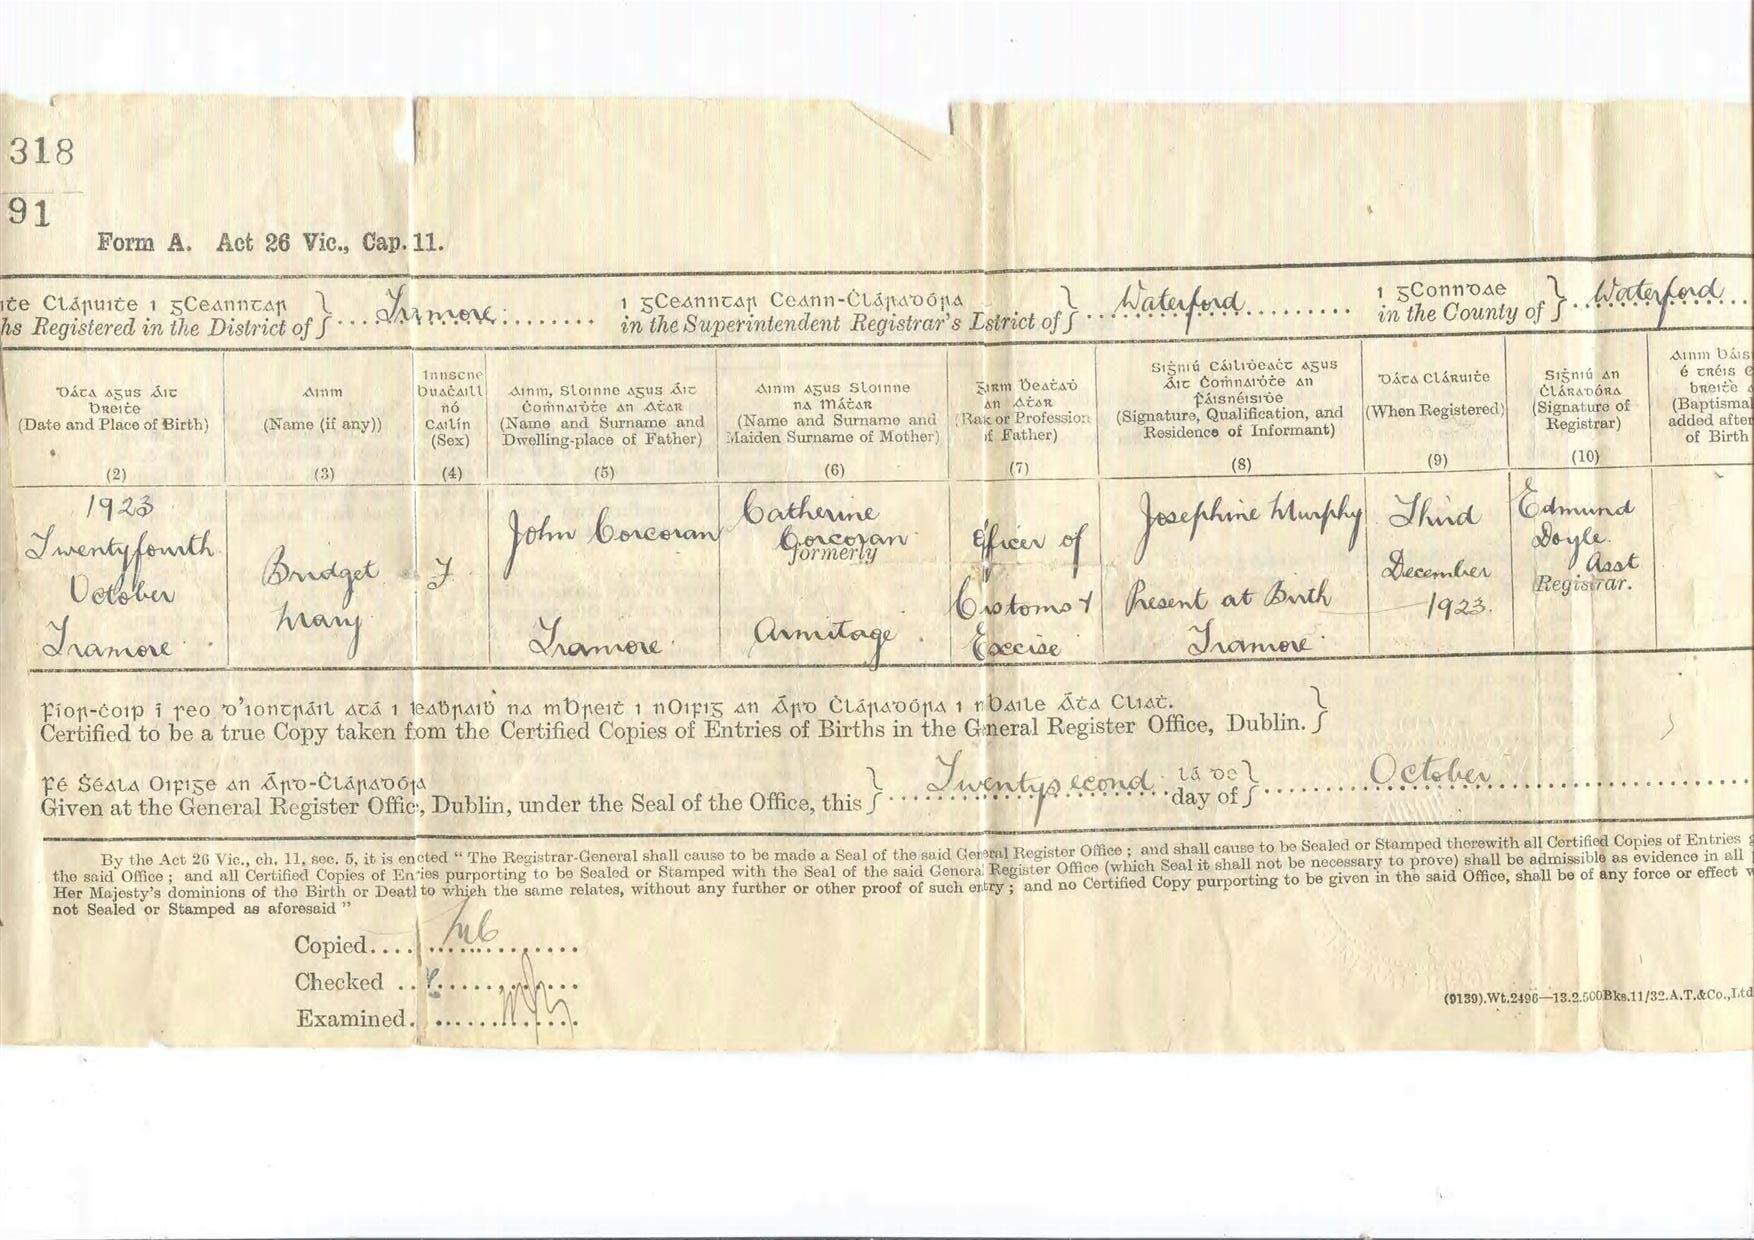 318
91
Form A. Act 26 Vic., Cap. 11.
ıṫe Cláruıṫe ı gCeanntar } Tramore ı gCeanntar Ceann-Ċláraḋóra } Waterford ı gConndae } Waterford
hs Registered in the District of in the Superintendent Registrar's Istrict of in the County of
Dáta agus Áıt Breıṫe (Date and Place of Birth) (2)
Aınm (Name (if any)) (3)
Innscne Buaċaıll nó Caılín (Sex) (4)
Aınm, Sloınne agus Áıt Ċoṁnaıḋṫe an Aṫar (Name and Surname and Dwelling-place of Father) (5)
Aınm agus Sloınne na Máṫar (Name and Surname and Maiden Surname of Mother) (6)
Ġaırm Beaṫaḋ an Aṫar (Rak or Profession of Father) (7)
Sıġnıú Cáılıḋeaċt agus Áıt Ċoṁnaıḋṫe an Ḟáısnéısıḋe (Signature, Qualification, and Residence of Informant) (8)
Dáta Cláruıṫe (When Registered) (9)
Sıġnıú an Ċláraḋóra (Signature of Registrar) (10)
Aınm Báıs é tréıs breıṫe (Baptisma added after of Birth
1923 Twentyfourth October Tramore
Bridget Mary
F
John Corcoran Tramore
Catherine Corcoran formerly Armitage
Officer of Customs & Excise
Josephine Murphy Present at Birth Tramore
Third December 1923.
Edmund Doyle. Asst Registrar.
Fíor-ċóıp í seo d'ıontráıl atá ı leaḃraıḃ na mBreıṫ ı nOıfıg an Árd Ċláraḋóra ı mBaıle Áṫa Clıaṫ. }
Certified to be a true Copy taken from the Certified Copies of Entries of Births in the General Register Office, Dublin.
Fé Ṡéala Oıfıge an Árd-Ċláraḋóra } Twentysecond lá de } October
Given at the General Register Offic, Dublin, under the Seal of the Office, this day of
By the Act 26 Vic., ch. 11, sec. 5, it is enacted “ The Registrar-General shall cause to be made a Seal of the said General Register Office ; and shall cause to be Sealed or Stamped therewith all Certified Copies of Entries
the said Office ; and all Certified Copies of Entries purporting to be Sealed or Stamped with the Seal of the said General Register Office (which Seal it shall not be necessary to prove) shall be admissible as evidence in all
Her Majesty's dominions of the Birth or Death to which the same relates, without any further or other proof of such entry ; and no Certified Copy purporting to be given in the said Office, shall be of any force or effect
not Sealed or Stamped as aforesaid ”
Copied....
Checked ..
Examined.
(9139).Wt.2496—13.2.500Bks.11/32.A.T.&Co.,Ltd